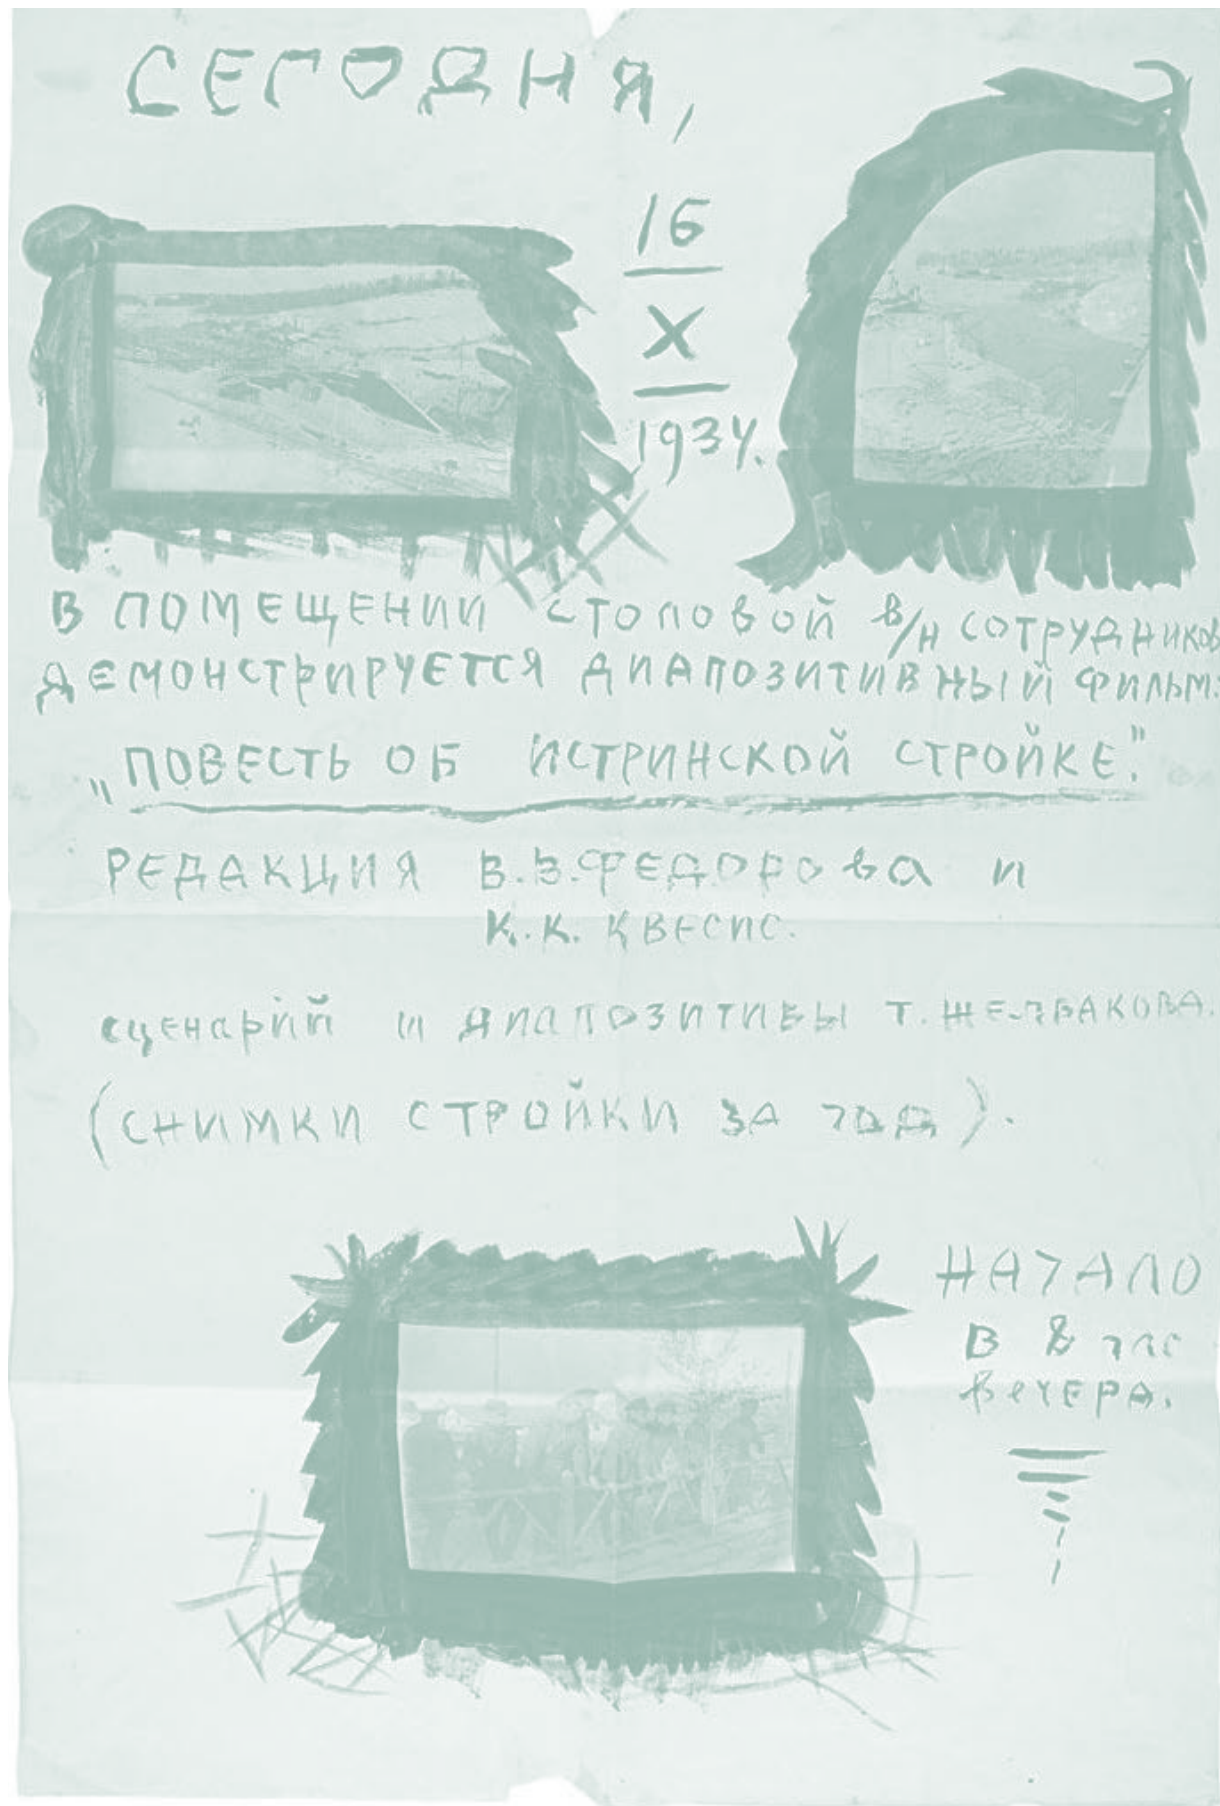 СЕГОДНЯ,
16
X
1934.
В ПОМЕЩЕНИИ СТОЛОВОЙ в/н СОТРУДНИКОВ
ДЕМОНСТРИРУЕТСЯ ДИАПОЗИТИВНЫЙ ФИЛЬМ:
„ПОВЕСТЬ ОБ ИСТРИНСКОЙ СТРОЙКЕ."
РЕДАКЦИЯ В.В.ФЕДОРОВА И
К.К. КВЕСИС.
СЦЕНАРИЙ И ДИАПОЗИТИВЫ Т.
(СНИМКИ СТРОЙКИ ЗА ГОД).
НАЧАЛО
В 8 ЧАС
ВЕЧЕРА.